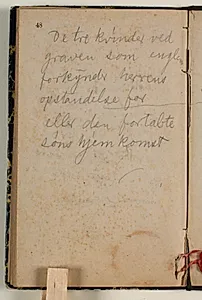 48
De tre kvinder ved
graven som englen
forkynder herrens
opstandelse for
eller den fortabte
søns hjemkomst